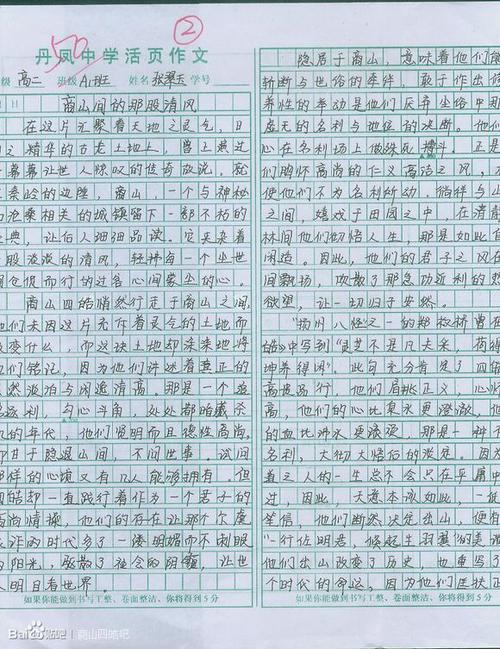 ②
50
丹凤中学活页作文
级 高二 班级 A1班 姓名 张翠玉 学号
日
商山间的那股清风
在这片汇聚着天地之灵气，日
月之精华的古老土地上，曾上演过
一幕幕让世人惊叹的传奇故说，就
秦岭的边陲，商山，一个与神秘
沧桑相关的城镇留下一部不朽的
经典，让后人细细品读。它夹杂着
股淡淡的清风，轻拂每一个尘世
间仓促而行的过客心间蒙尘的心。
商山四皓悄然行走于商山之间，
他们未因这片充斥着灵气的土地而
改变什么，而这块土地却未来地将
他们铭记，因为他们讲述着真正的
淡然淡泊与闲逸清高。那是一个
名逐利，勾心斗角，处处都暗藏杀
机的年代，他们贤明而且德性高尚，
却甘于隐退山间，不问世事。试问
那样的心境又有几人能够拥有，但
四皓却一直践行着作为一个君子的
高尚情操，他们的存在让那个尔虞
我诈的时代多了一缕明媚而不刺眼
的阳光，驱散了社会的阴霾，让世
人明目看世界。
隐居于商山，意味着他们
斩断与世俗的牵绊，敢于作出
养性的举动是他们厌弃尘俗中
虚无的名利与地位的决断。他们
心在名利场上做殊死搏斗。正是
们胸怀高尚的仁义高洁之风，
使他们不为名利所动，徜徉与山
之间，嬉戏于田园之中，在清
林间他们顿悟人生，那是如此
闲适。因此，他们的君子之风在
间飘扬，吹散了那急功近利的
欲望，让一切归于安然。
扬州八怪之一的郑板桥曾在
皓中写到“灵芝不是凡夫采，荷得
坤养得闲”。此句充分肯定了四皓
高贵品行，他们肩挑正义，心
高，他们的心比泉水更澄澈，他们
的血比沸水更滚烫，那是一种
名利，大彻大悟后的淡定。因为
道之人的一生总不会只在平庸中
过，因此，天道本该如此，一
笃信，他们断然决定出山，便有
“一行佐明君，倏起生羽翼”的美
他们出山改变了历史，也重写了
个时代的命运，因为他们匡扶正
如果你能做到书写工整、卷面整洁、你将得到5分
如果你能做到书写工整、卷面整洁、你将得到5分
Baidu贴吧 | 商山四皓吧